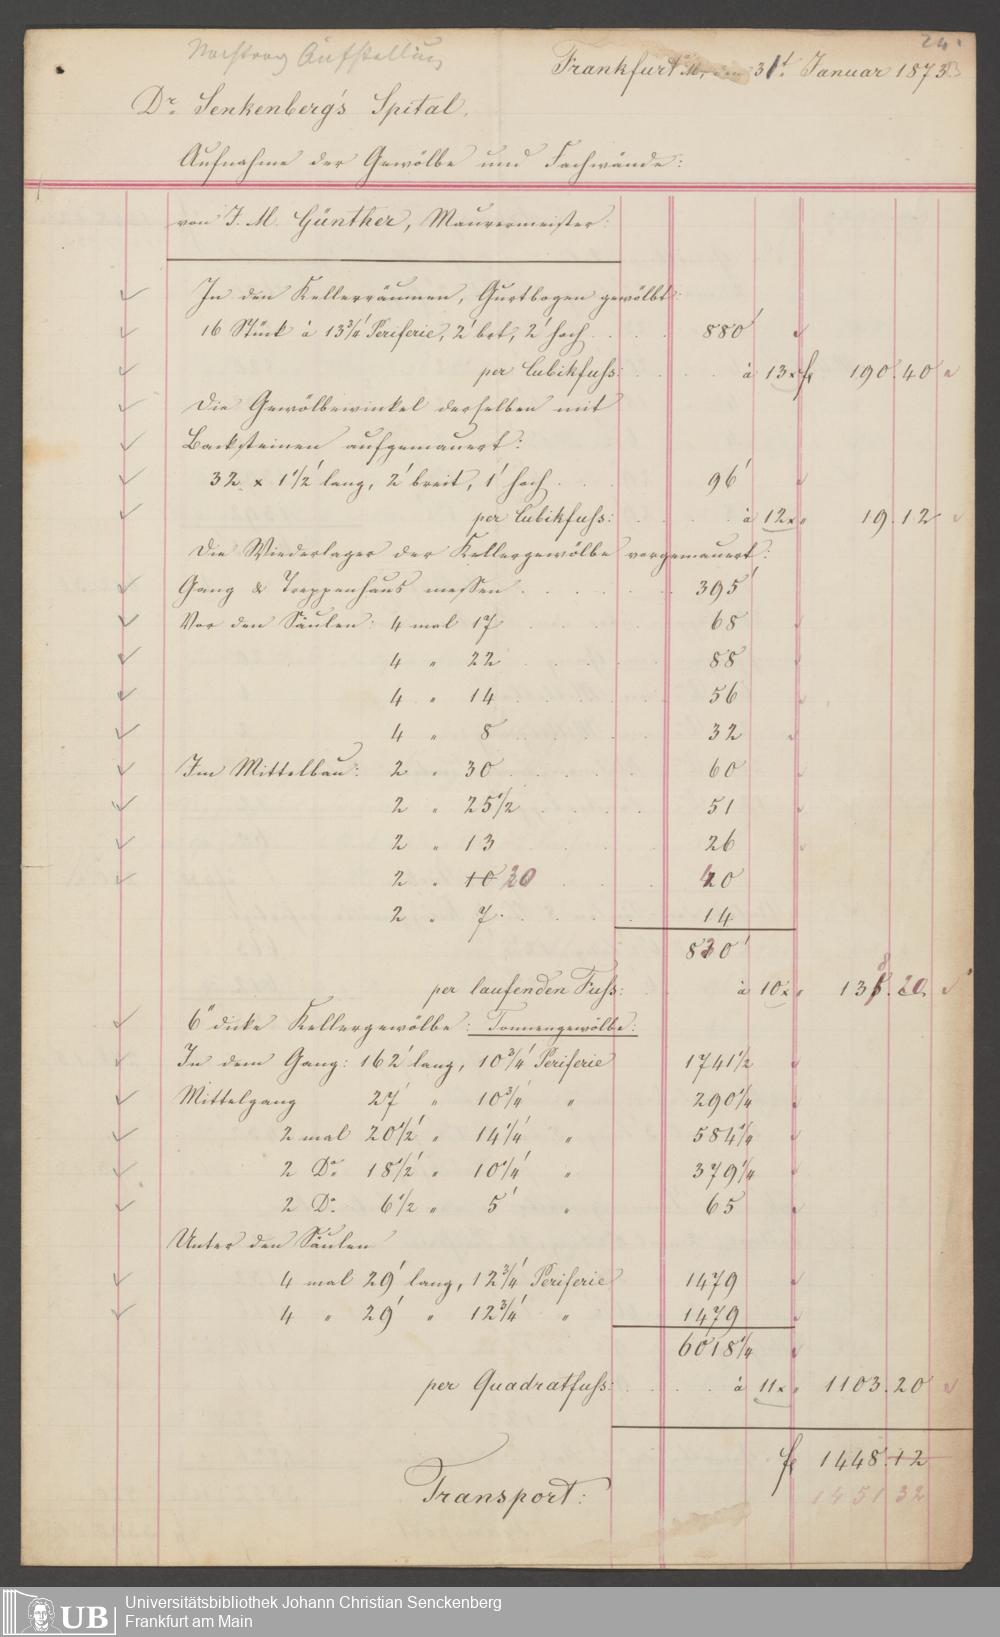 24.
Nachtrag Aufstellung
Frankfurt a/M, den 31t Januar 1873
Dr. Senkenberg's Spital.
Aufnahme der Gewölbe und Fachwände:
von J. M. Günther, Maurermeister:
In den Kellerräumen, Gurtbogen gewölbt:
16 Stück à 13¾' Periferie, 2' brt, 2' hoch . . . 880'
per Cubikfuss: . . . à 13x fl 190.40
Die Gewölbewinkel derselben mit
Backsteinen aufgemauert:
32 x 1½' lang, 2' breit, 1' hoch . . . 96'
per Cubikfuss: . . . à 12x " 19.12
Die Wiederlager der Kellergewölbe vorgemauert:
Gang & Treppenhaus messen . . . 395'
Vor den Säulen: 4 mal 17 . . . 68
4 " 22 . . . 88
4 " 14 . . . 56
4 " 8 . . . 32
Im Mittelbau: 2 " 30 . . . 60
2 " 25½ . . . 51
2 " 13 . . . 26
2 " 10 20 . . . 40
2 " 7 . . . 14
830'
per laufenden Fuss: . . . à 10x " 138.20
6" dicke Kellergewölbe: Tonnengewölbe:
In dem Gang: 162' lang, 10¾' Periferie 1741½
Mittelgang 27' " 10¾' " 290¼
2 mal 20½' " 14¼' " 584¼
2 Do. 18½' " 10¼' " 379¼
2 Do. 6½ " 5' " 65
Unter den Säulen
4 mal 29' lang, 12¾' Periferie 1479
4 " 29' " 12¾' " 1479
6018¼
per Quadratfuss: . . . à 11x " 1103.20
fl 1448.12
Transport:
1451 32
UB
Universitätsbibliothek Johann Christian Senckenberg
Frankfurt am Main